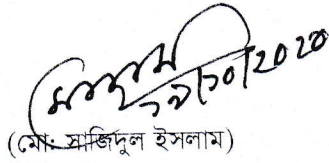 ১৯/১০/২০২০
(মো: সাজিদুল ইসলাম)